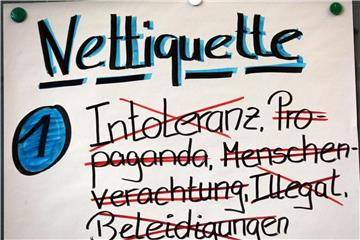 Nettiquette
1 Intoleranz, Pro-
paganda, Menschen-
verachtung, Illegal,
Beleidigungen